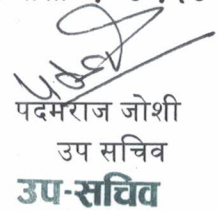 पदमराज जोशी
उप सचिव
उप-सचिव